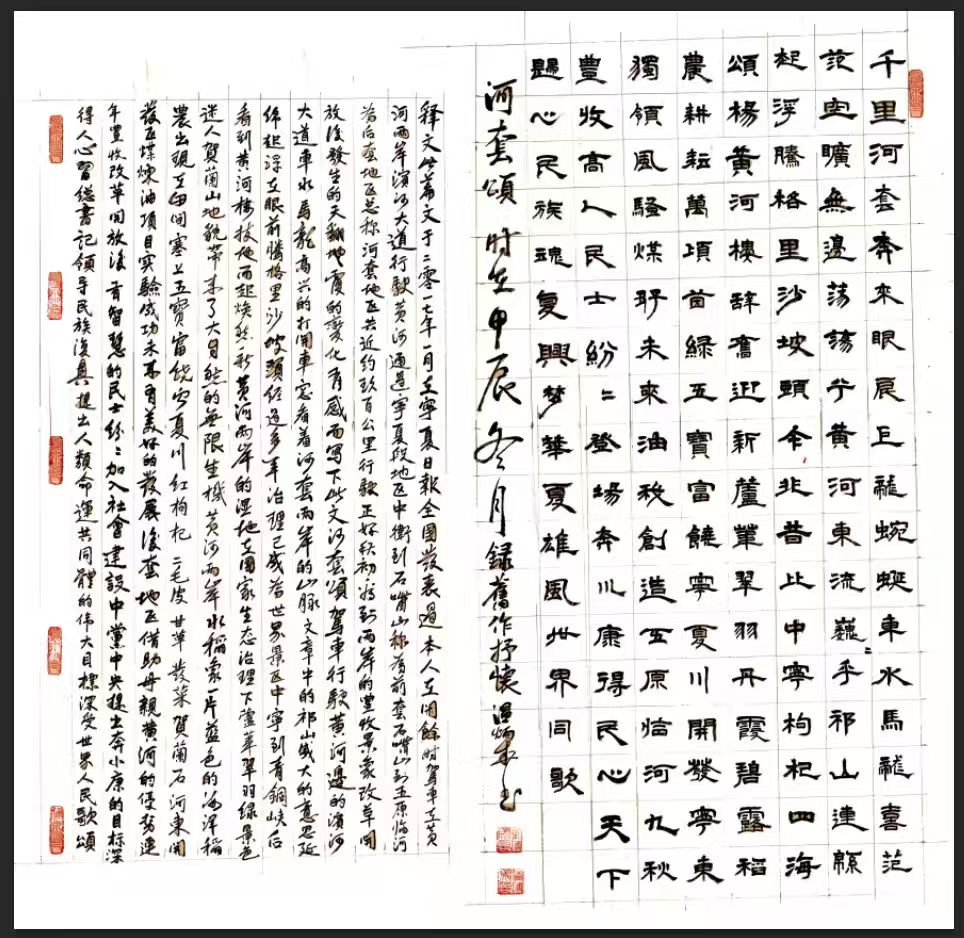 千里河套奔來眼底巨龍蜿蜒車水馬龍喜范
范空曠無邊荡蕩兮黃河東流巍〻乎祁山連綿
起浮騰格里沙坡頭今非昔比中寧枸杞四海
頌楊黃河樓辭舊迎新蘆葦翠羽丹霞碧露稻
農耕耘萬項苗綠五寶富饒寧夏川開發寧東
獨領風騷煤 未來油 創造五原临河九秋
豊收高人民士紛〻登場奔小康得民心天下
歸心民族魂复興梦華夏雄風世界同歌
河套頌 时在甲辰冬月録舊作抒懷 温炳 书
释文此篇文于二零一七年一月在寧夏日報全國發表過本人在閒餘时驾車在黄
河两岸濱河大道行駛黄河通過寧夏段地区中衛到石嘴山称為前套石嘴山到五原临河
為后套地区总称河套地区共近约玖百公里行駛正好秋初 到两岸的豊收景象改革開
放後發生的天翻地覆的變化有感而寫下此文河套頌驾車行駛黄河邊的濱河
大道車水馬龍高兴的打開車窓看着河套两岸的山脉文章中的祁山 大的意思延
绵起浮在眼前腾格里沙坡頭经過多年治理已成為世界景区中寧到青銅峡后
看到黄河楼拔地而起焕然一新黄河两岸的湿地在國家生态治理下蘆葦翠羽绿景色
迷人賀蘭山地貌带来了大自然的無限生機黄河两岸水稻象一片蓝色的海洋稻
農出現在田間塞上五寶富饶寧夏川红枸杞二毛皮甘草發菜賀蘭石河東開
發 煤煉油項目实驗成功未来有美好的發展後套地区借助母親黄河的優势連
年豊收改革開放後有智慧的民士纷〻加入社會建設中黨中央提出奔小康的目标深
得人心習總書記领导民族復興提出人類命運共同體的伟大目標深受世界人民歌頌